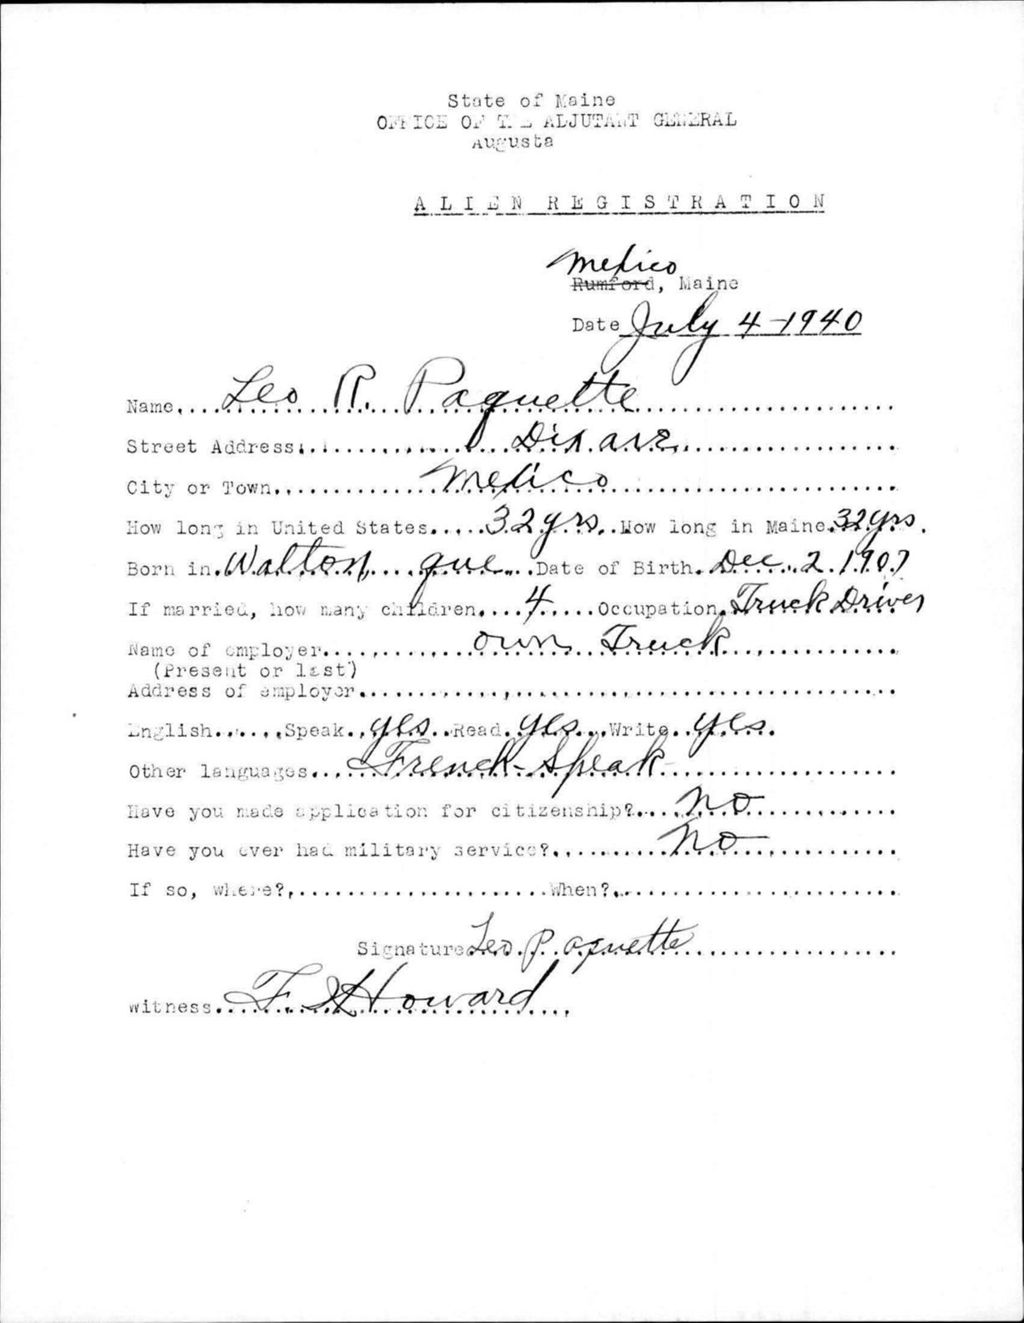 State of Maine
OFFICE OF THE ADJUTANT GENERAL
Augusta
ALIEN REGISTRATION
Mexico
Rumford, Maine
Date July 4-1940
Name....Leo R. Paquette....
Street Address....Dix ave....
City or Town....Mexico....
How long in United States....32 yrs...How long in Maine.32 yrs.
Born in.Walton....que....Date of Birth.Dec..2.1907
If married, how many children....4....Occupation.Truck Driver
Name of employer....own Truck....
(Present or last)
Address of employer....
English....Speak..yes..Read.yes..Write..yes.
Other languages...French-Speak....
Have you made application for citizenship?....no....
Have you ever had military service?....no....
If so, where?....When?....
Signature Leo Paquette....
Witness....F. Howard....